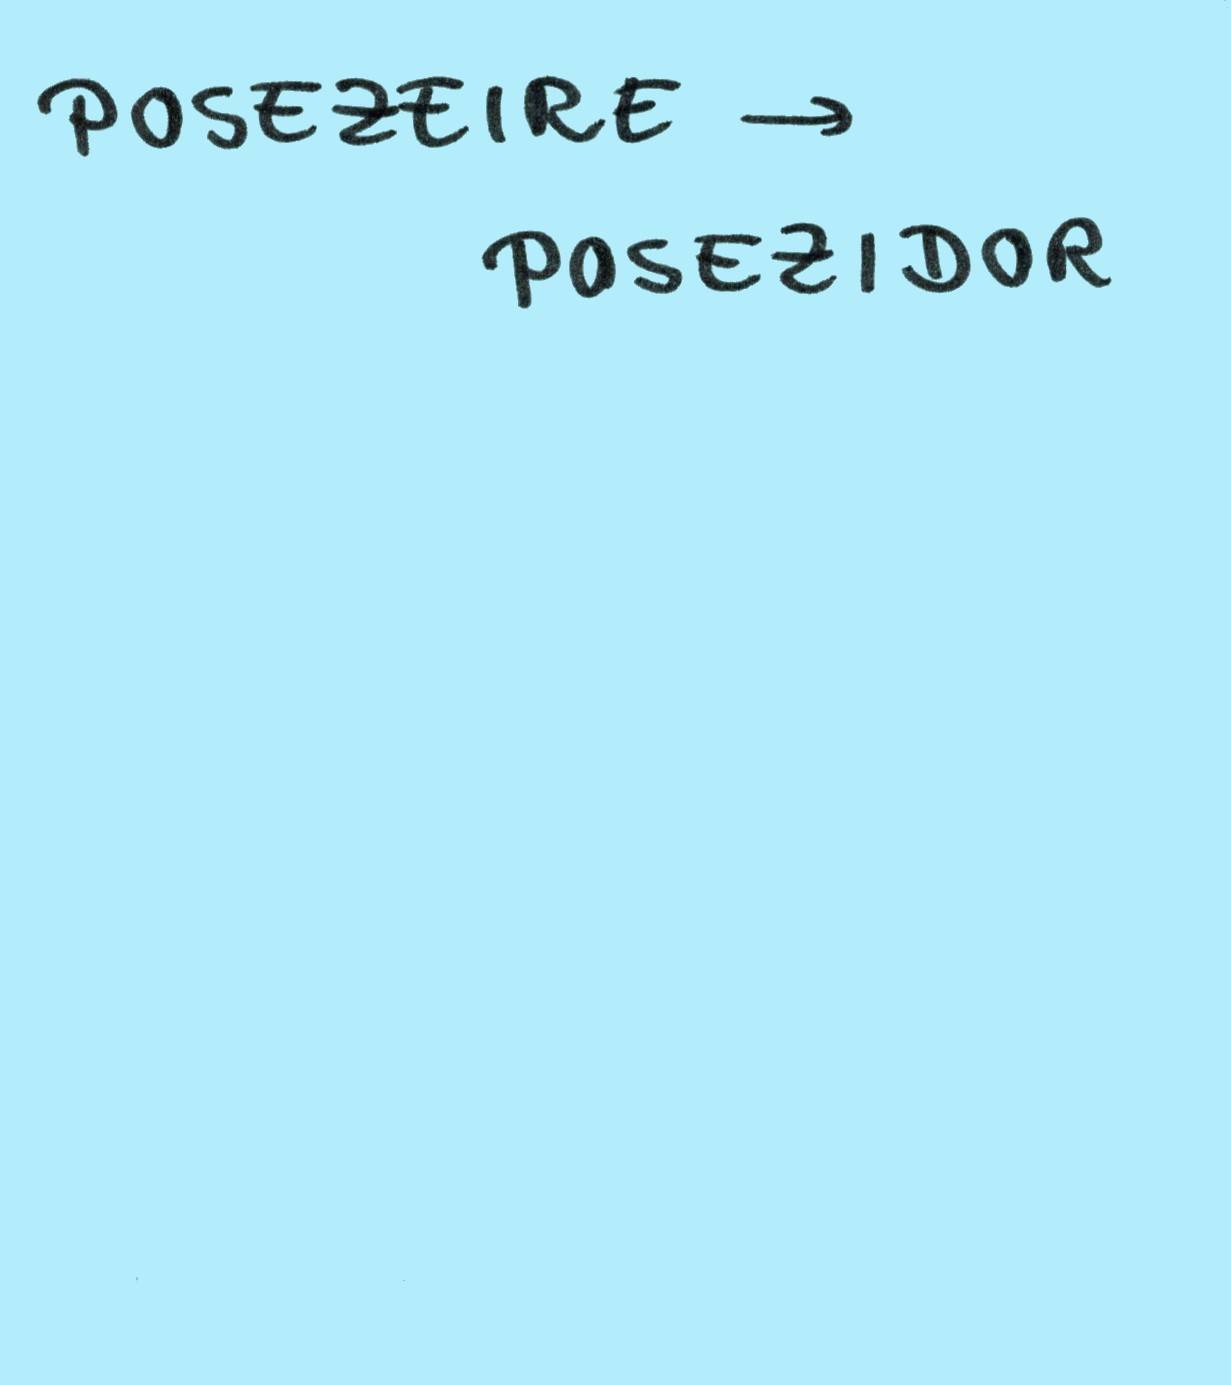 POSEZEIRE →
POSEZIDOR